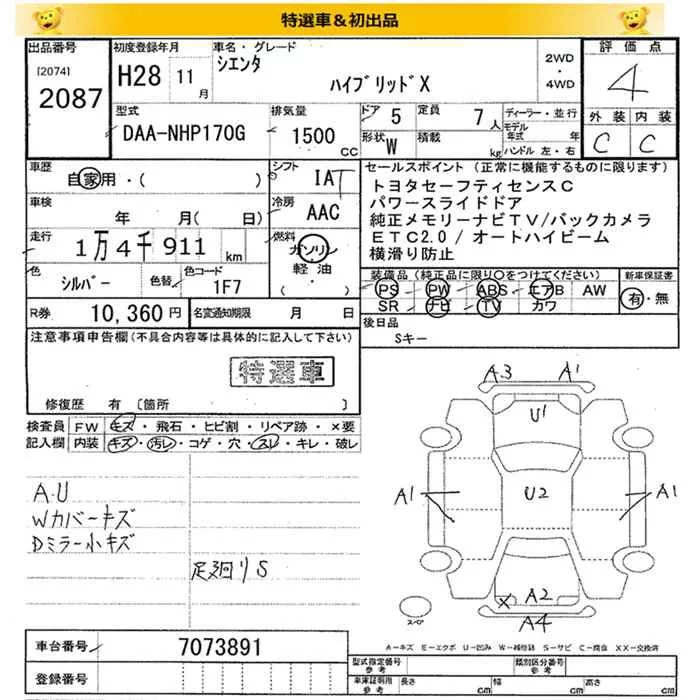 特選車＆初出品
出品番号
[2074]
2087
初度登録年月
H28 11月
車名・グレード
シエンタ
ハイブリッドX
2WD
・
4WD
評価点
4
外装 内装
C C
型式
DAA-NHP170G
排気量
1500
CC
ドア 5
定員 7人
形状 W
積載 kg
ディーラー・並行
モデル年式 年
ハンドル 左・右
車歴
自家用・( )
シフト
IAT
車検
年 月( 日)
冷房
AAC
走行
1万4千911 km
燃料
ガソリン
軽油
( )
色
シルバー
色替
色コード
1F7
R券 10,360円
名変通知期限 月 日
セールスポイント (正常に機能するものに限ります)
トヨタセーフティセンスC
パワースライドドア
純正メモリーナビTV/バックカメラ
ETC2.0 / オートハイビーム
横滑り防止
装備品 (純正品に限り○をつけてください)
PS PW ABS エアB AW
SR ナビ TV カワ
新車保証書
有・無
後日品
Sキー
注意事項申告欄(不具合内容等は具体的に記入して下さい)
特選車
修復歴 有 [箇所 ]
検査員記入欄
FW キズ・飛石・ヒビ割・リペア跡・×要
内装 キズ・汚レ・コゲ・穴・スレ・キレ・破レ
A.U
Wカバーキズ
Dミラー小キズ
足廻リS
A3 A1
U1
A1 U2 A1
A2
X
A4
スペア
A-キズ E-エクボ U-凹み W-補修跡 S-サビ C-腐食 XX-交換済
車台番号 7073891
登録番号
型式指定番号 参考
類別区分番号 参考
車庫証明用 参考
長さ cm 幅 cm 高さ cm